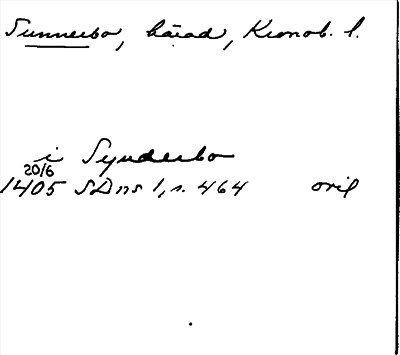 Sunnerbo, härad, Kronob. l.
i Synderbo
20/6
1405 SDns 1, s. 464 oril